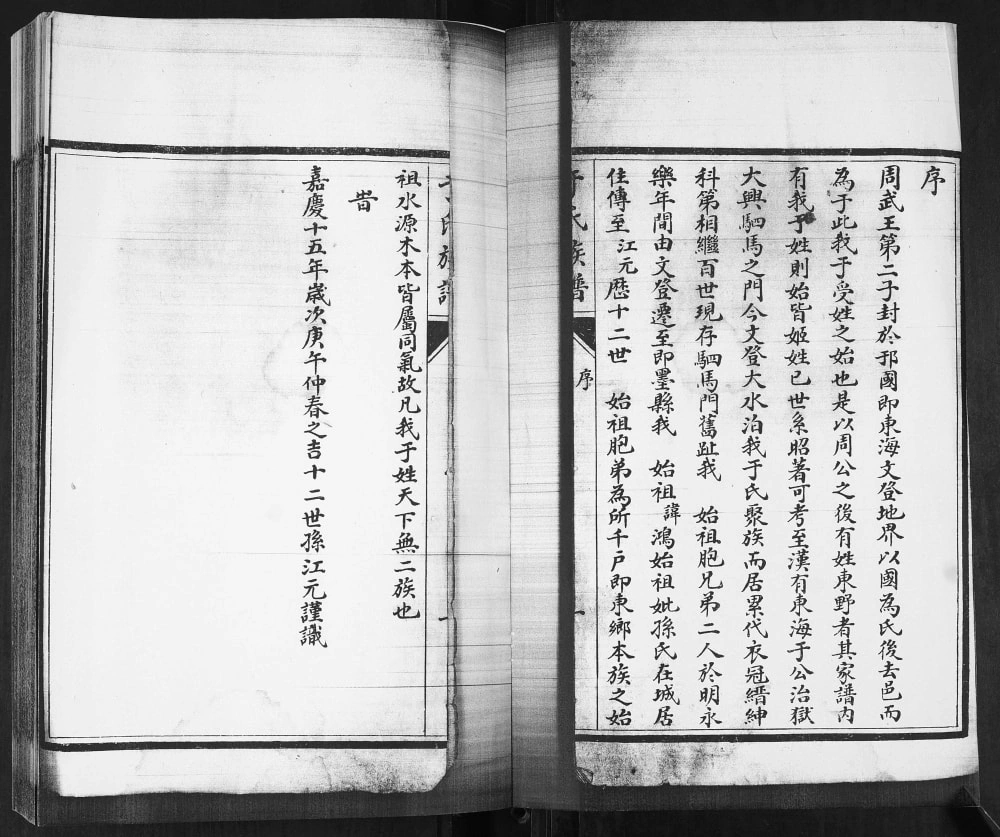 序
周武王第二子封於邘國即東海文登地界以國為氏後去邑而
為于此我于受姓之始也是以周公之後有姓東野者其家譜內
有我于姓則始皆姬姓已世系昭著可考至漢有東海于公治獄
大興駟馬之門今文登大水泊我于氏聚族而居累代衣冠縉紳
科第相繼百世現存駟馬門舊趾我 始祖胞兄弟二人於明永
樂年間由文登遷至即墨縣我 始祖諱鴻始祖妣孫氏在城居
住傳至 江元歷十二世 始祖胞弟為所千戶即東鄉本族之始
于氏族譜 序 一
祖水源木本皆屬同氣故凡我于姓天下無二族也
旹
嘉慶十五年歲次庚午仲春之吉十二世孫江元謹識